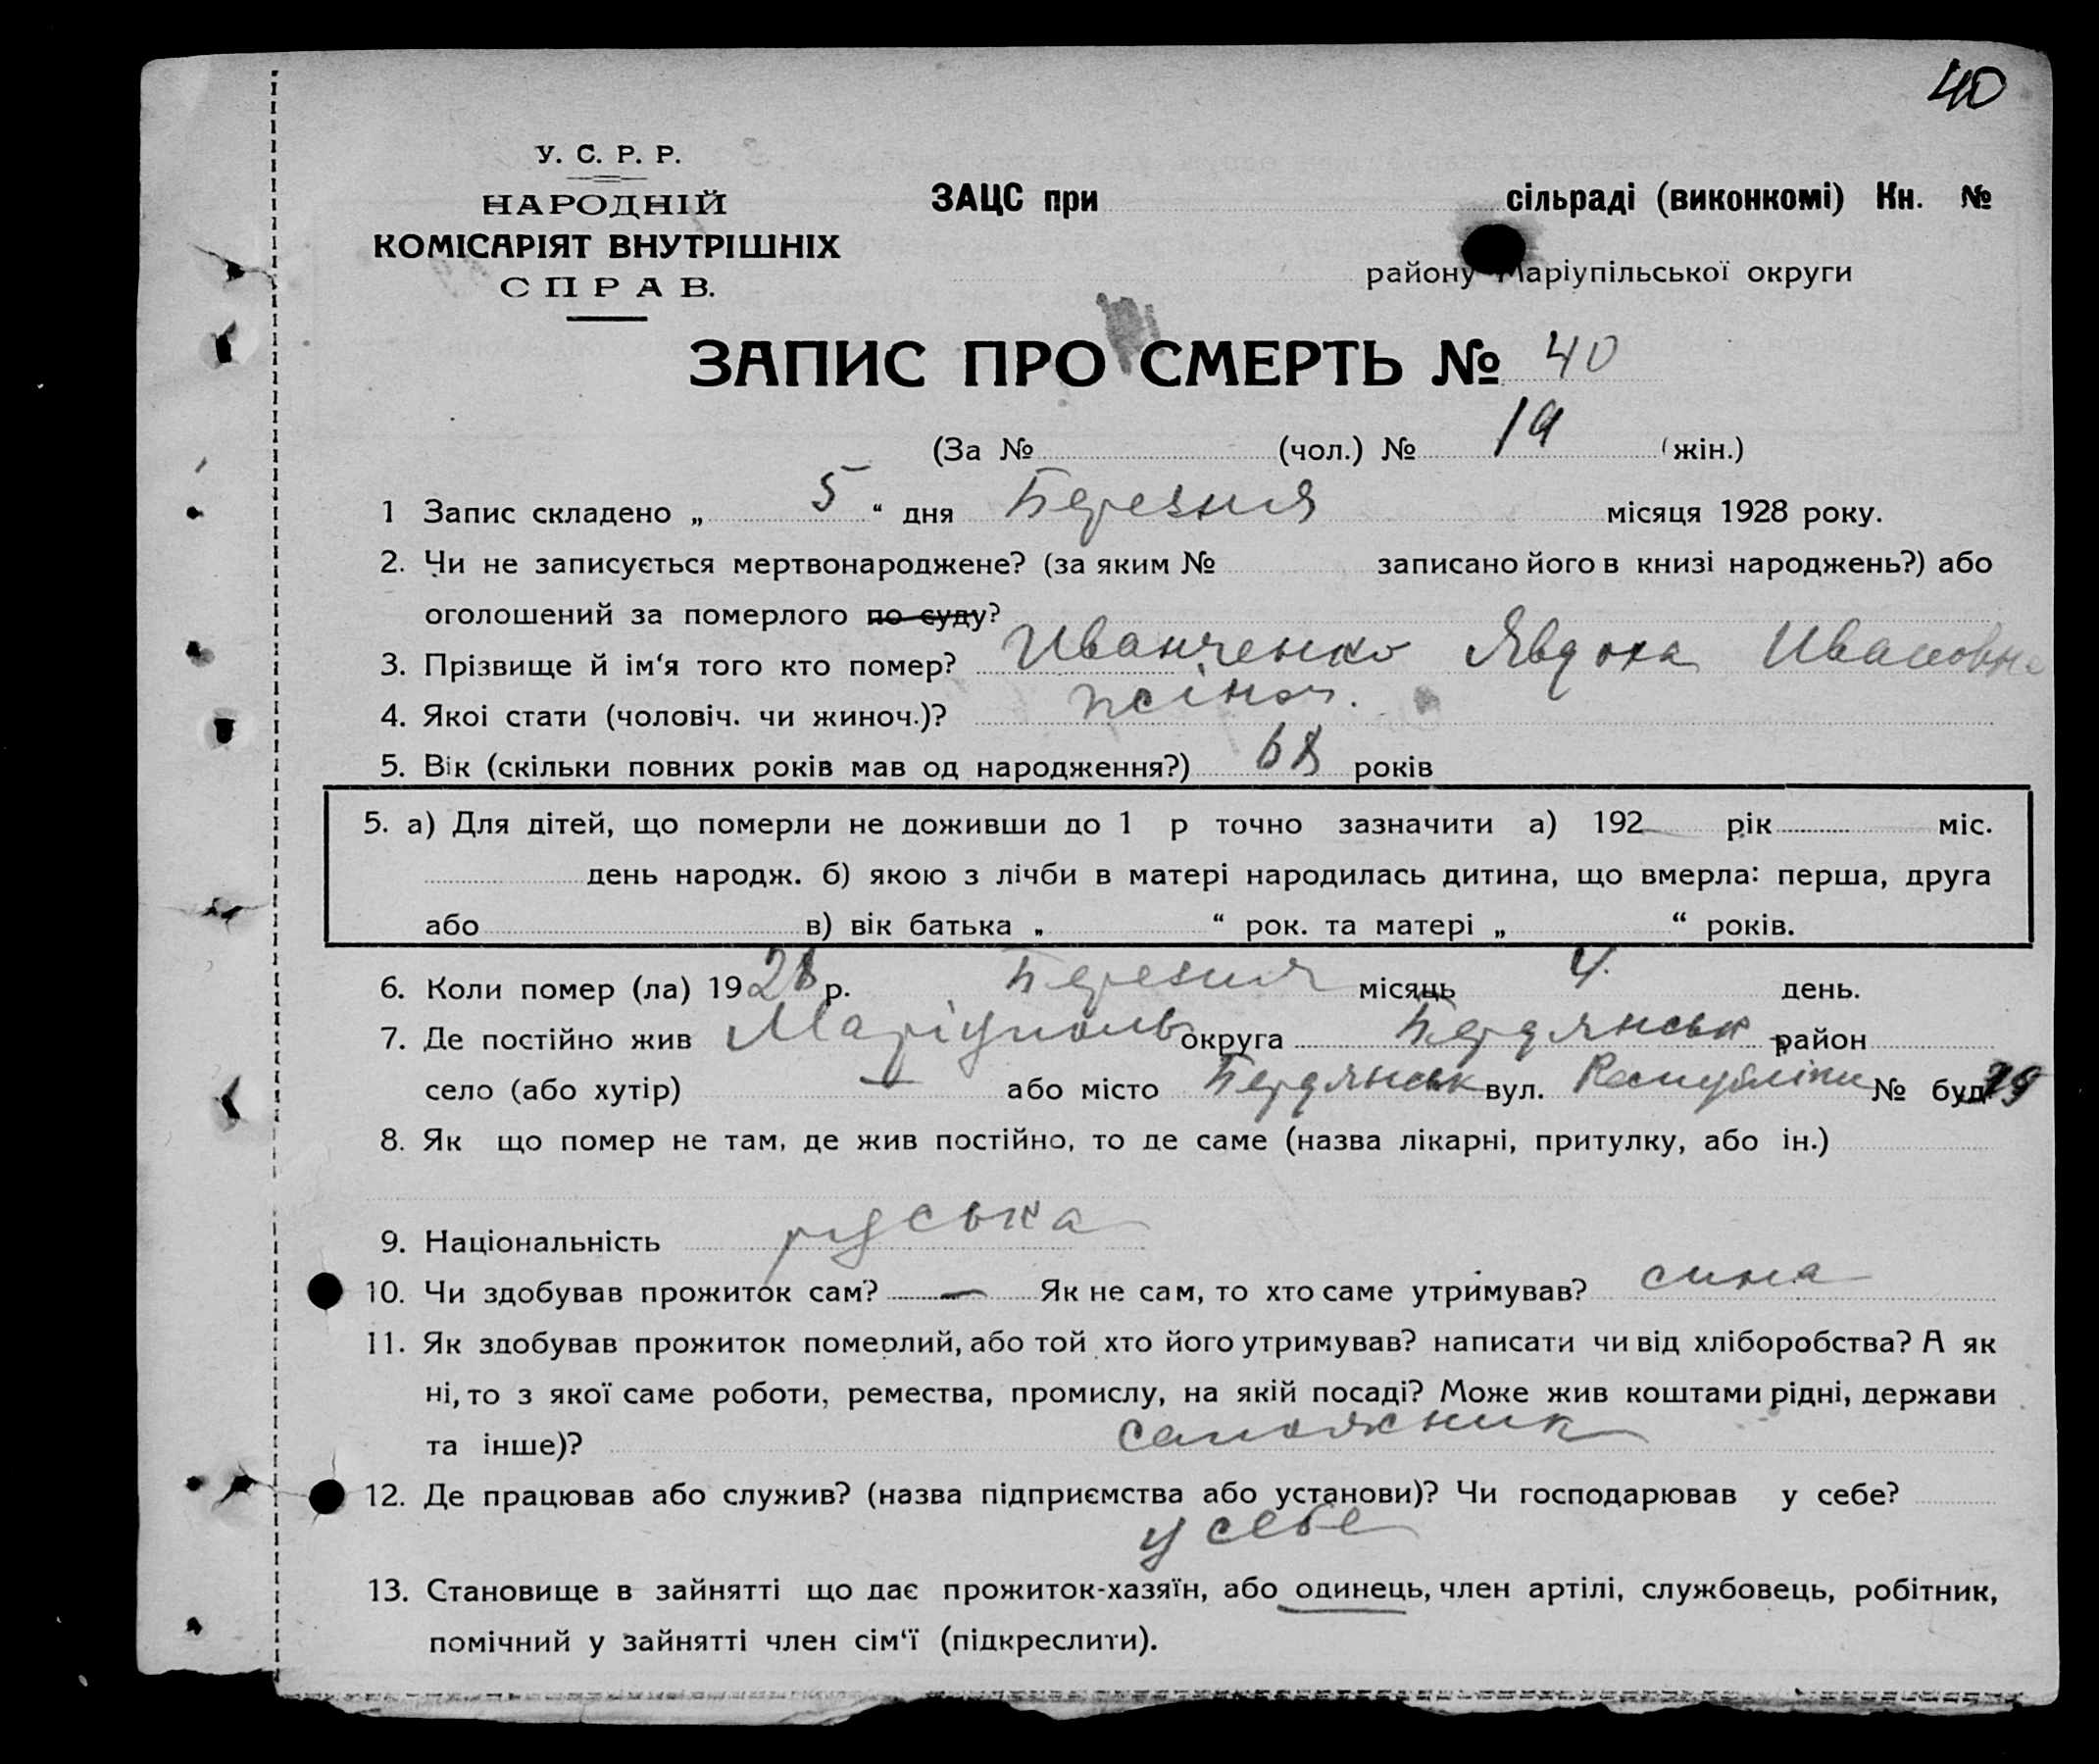 40
У. С. Р. Р.
НАРОДНІЙ
КОМІСАРІЯТ ВНУТРІШНІХ
СПРАВ.
ЗАЦС при сільраді (виконкомі) Кн. №
району Маріупільської округи
ЗАПИС ПРО СМЕРТЬ № 40
(За № (чол.) № 19 (жін.)
1 Запис складено „ 5 “ дня Березня місяця 1928 року.
2. Чи не записується мертвонароджене? (за яким № записано його в книзі народжень?) або
оголошений за померлого по суду?
3. Прізвище й ім‘я того кто помер? Иванченко Явдоха Ивановна
4. Якоі стати (чоловіч. чи жиноч.)? жіноч.
5. Вік (скільки повних років мав од народження?) 68 років
5. а) Для дітей, що померли не доживши до 1 р точно зазначити а) 192 рік міс.
день народж. б) якою з лічби в матері народилась дитина, що вмерла: перша, друга
або в) вік батька „ “ рок. та матері „ “ років.
6. Коли помер (ла) 1928 р. Березня місяць 4 день.
7. Де постійно жив Маріуполь округа Бердянськ район
село (або хутір) — або місто Бердянськ вул. Республіки № буд. 29
8. Як що помер не там, де жив постійно, то де саме (назва лікарні, притулку, або ін.)
9. Національність руська
10. Чи здобував прожиток сам? — Як не сам, то хто саме утримував? сина
11. Як здобував прожиток померлий, або той хто його утримував? написати чи від хліборобства? А як
ні, то з якої саме роботи, ремества, промислу, на якій посаді? Може жив коштами рідні, держави
та інше)? сапожник
12. Де працював або служив? (назва підприємства або установи)? Чи господарював у себе?
у себе
13. Становище в зайнятті що дає прожиток-хазяїн, або одинець, член артілі, службовець, робітник,
помічний у зайнятті член сім‘ї (підкреслити).